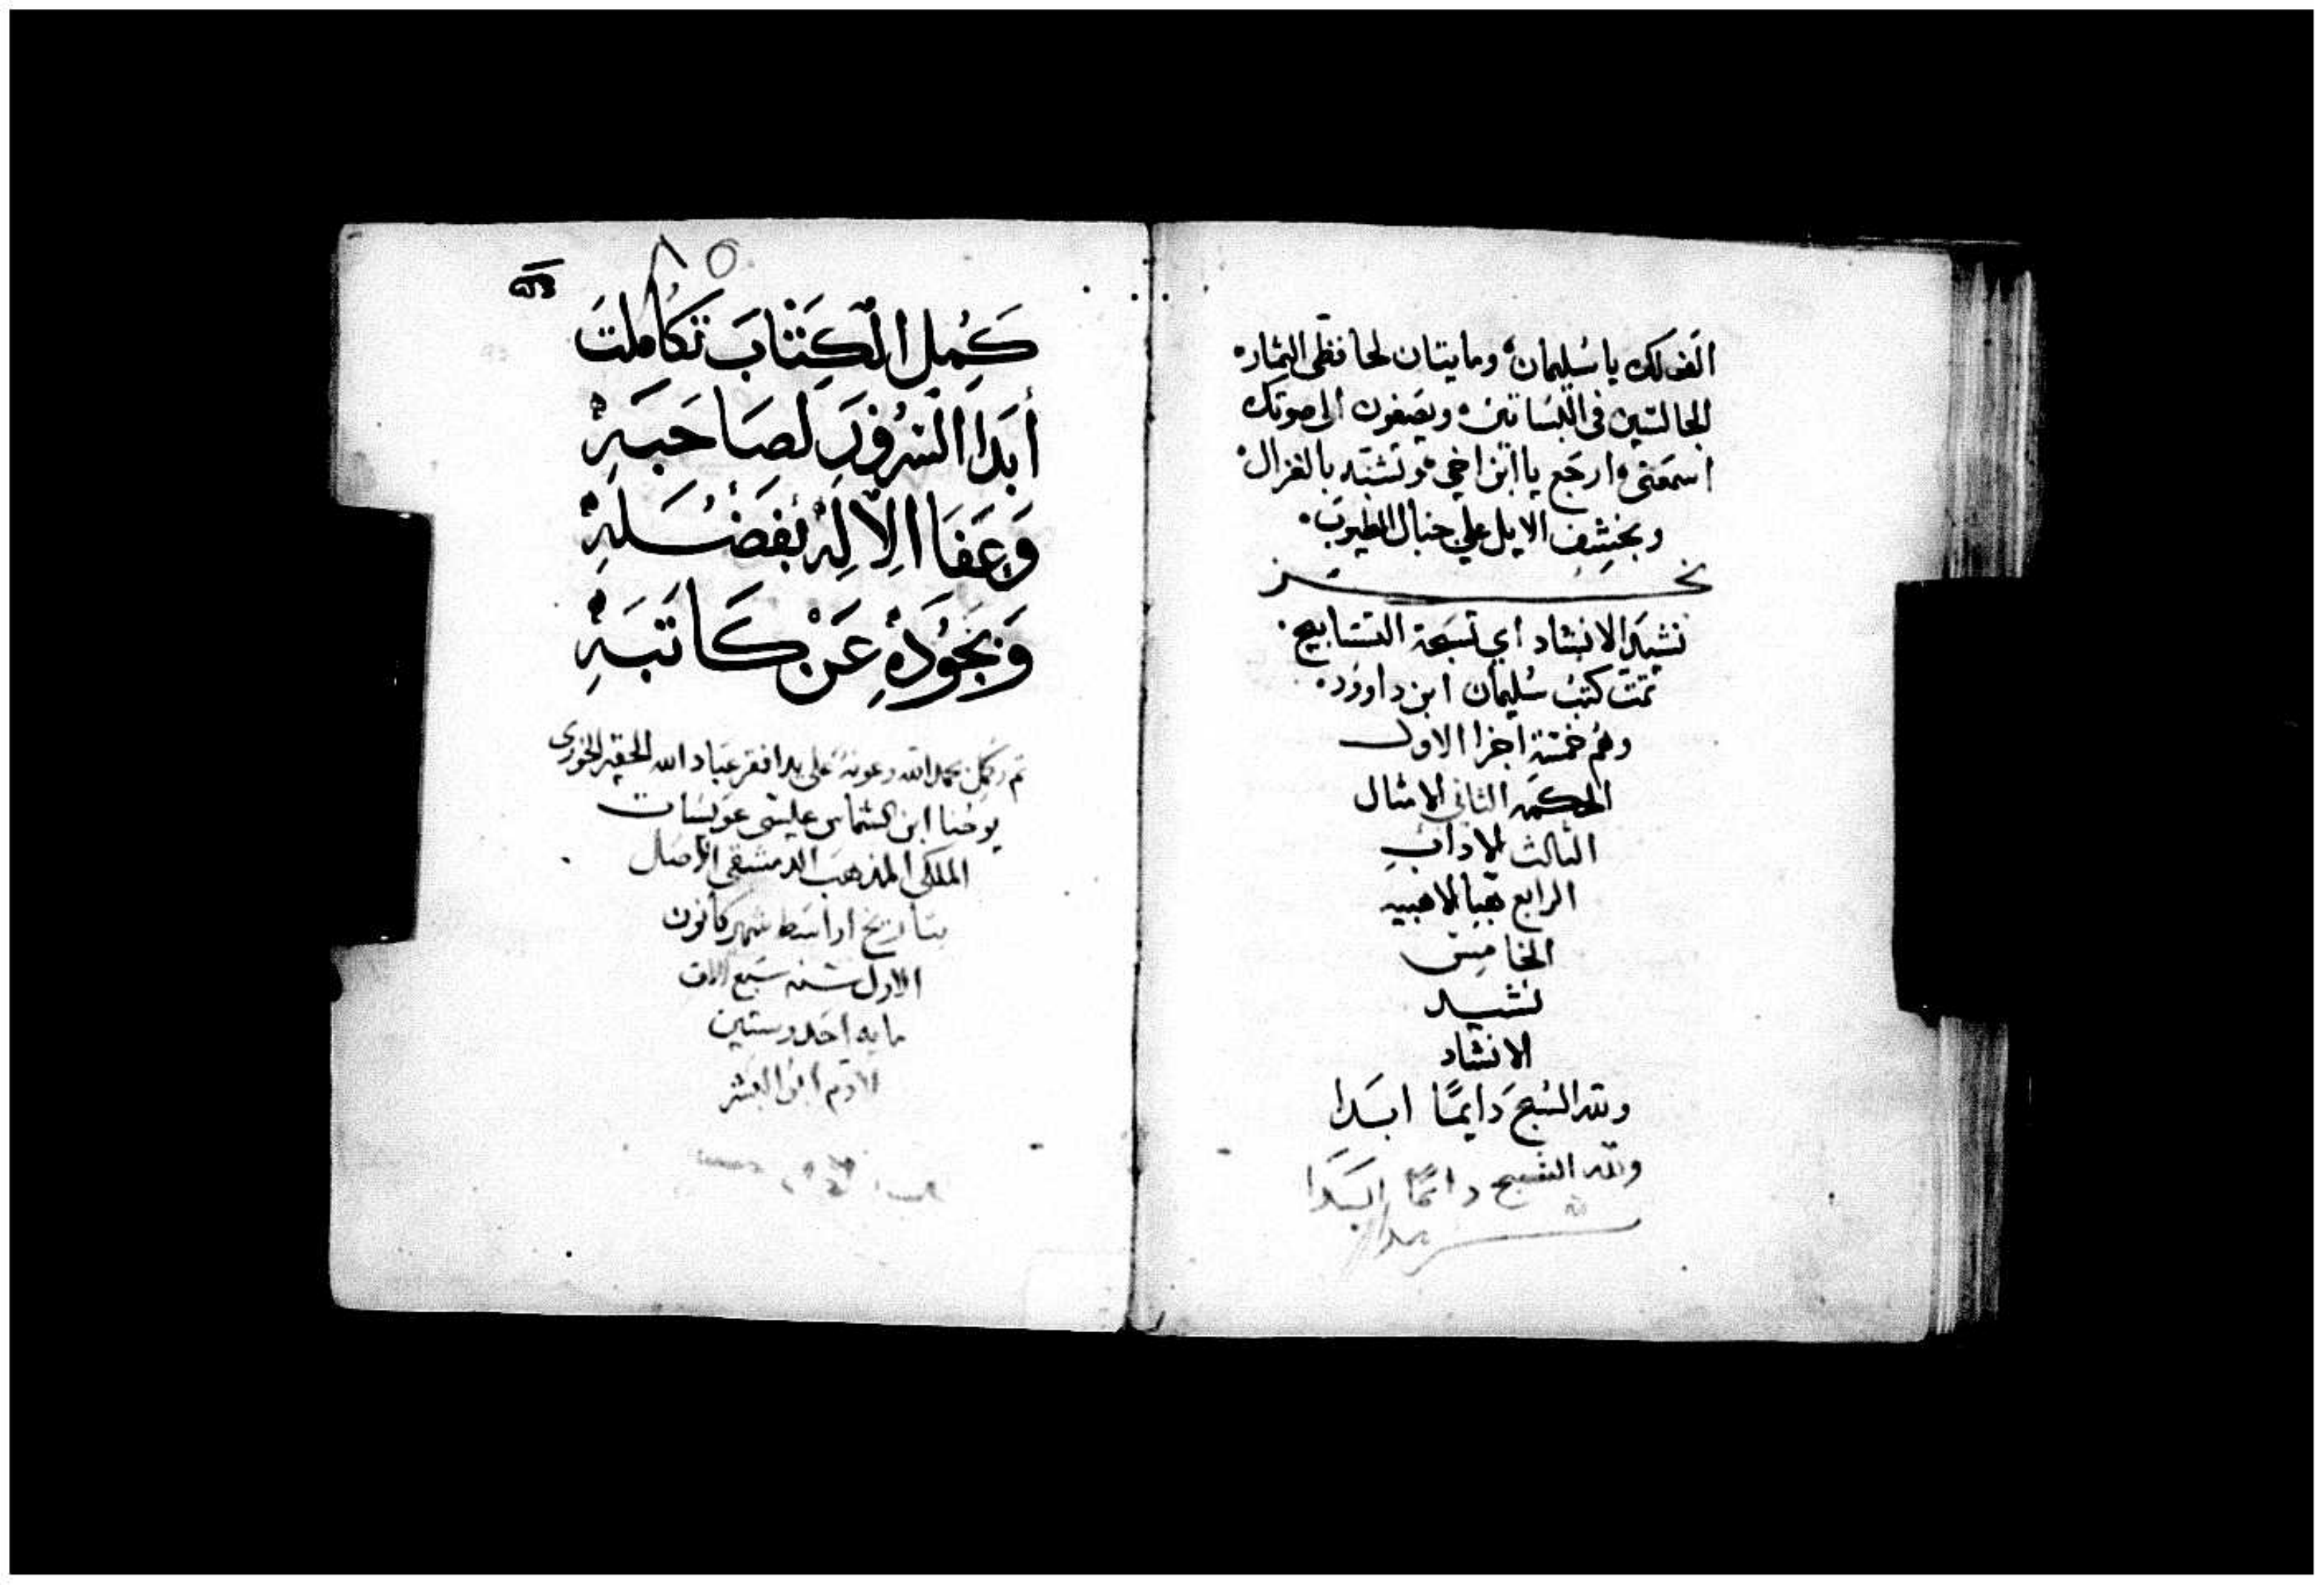 الف لك يا سليمان، وما يتان لحافظي الثماره
الجالسين في البساتين ه ويصغون الى صوتك
اسمعني ه ارجع يا ابن اخي ه وتشبّه بالغزال ه
وبخشف الايل علي جبال الطيوب.
نجز
نشيد الانشاد اي تسبحة التسابيح.
تمت كتب سليمان ابن داوود.
وهم خمسة اجزا الاول
الحكمه الثاني الامثال
الثالث الاداب
الرابع
الخامس
نشيد
الانشاد
ولله السبح دايمًا ابدا
ولله التسبيح دائمًا ابدا
٨٥
كَمُل الكِتَابَ تكاملت
أبدا السرُورَ لصَاحبهِ
وَعَفَا الاِلهُ بفضله
وَبجُودهِ عَنْ كَاتبهِ
تم وكمل بحمد الله وعونه على يد افقر عباد الله الحقير الخوري
يوحنا ابن الشماس عيسى عويسات
الملكي المذهب الدمشقي الاصل
بتاريخ اواسط شهر كانون
الاول سنه سبع الاف
مايه احد وستين
لادم ابو البشر